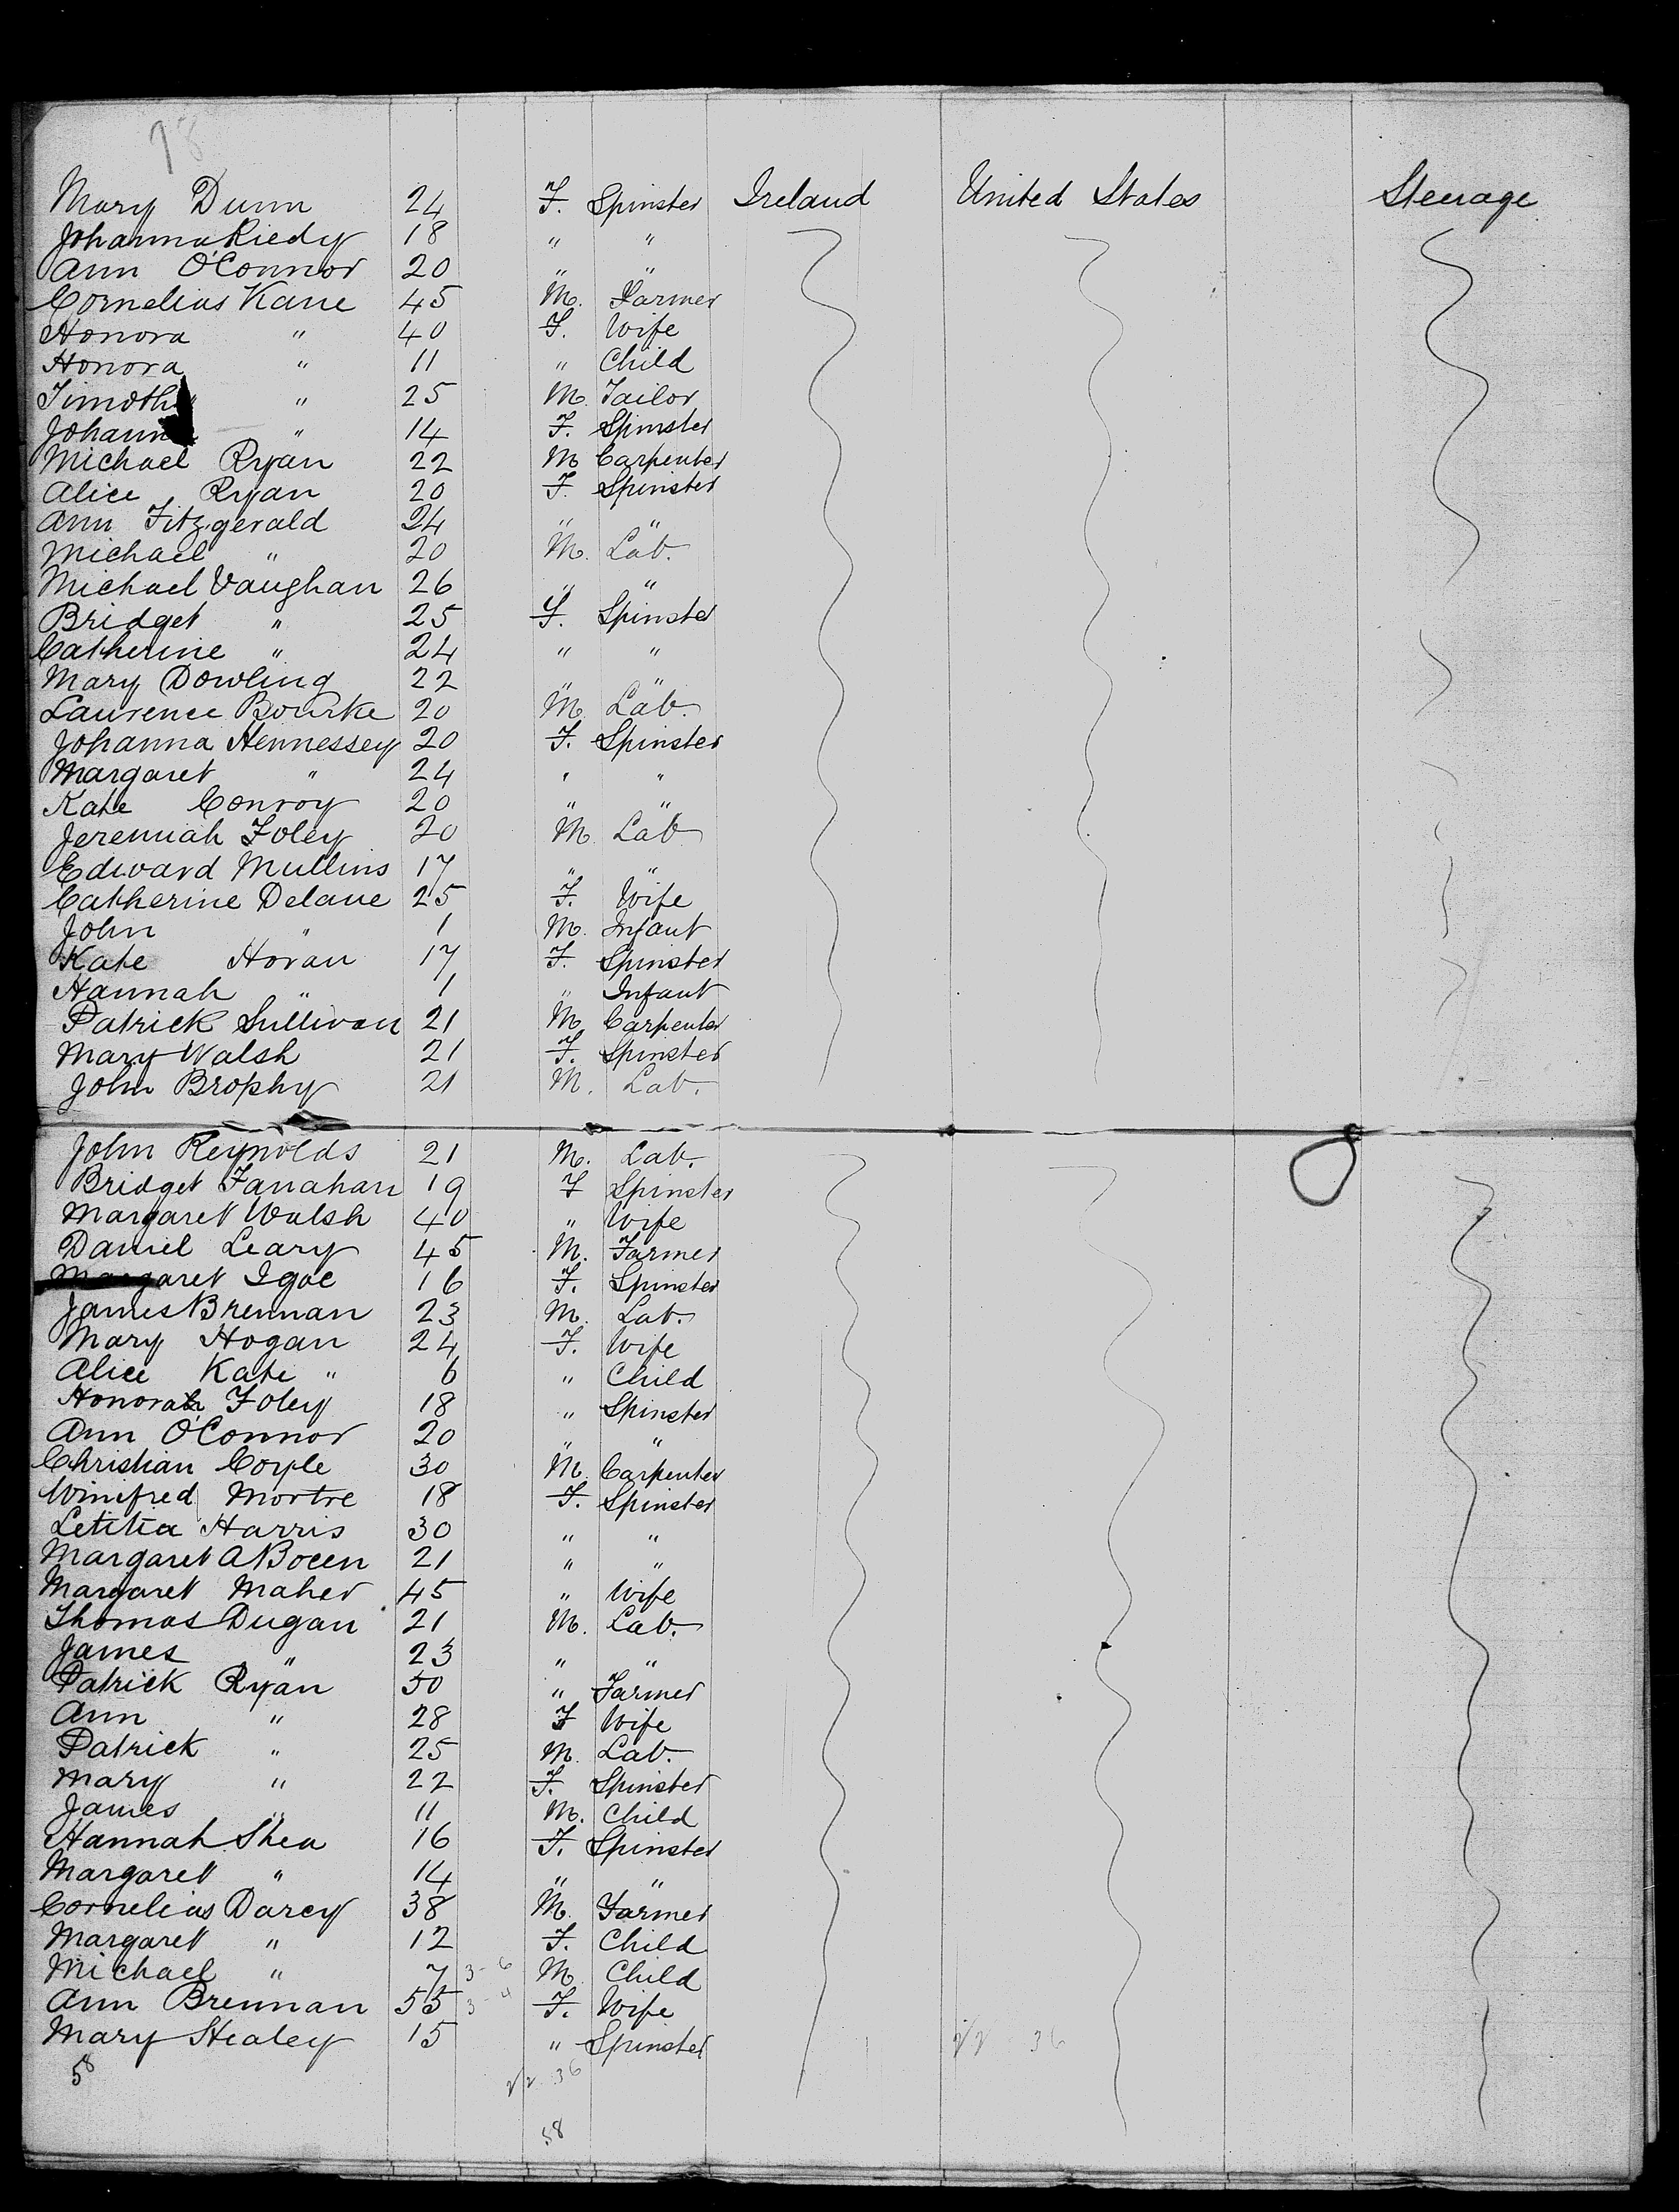 78
Mary Dunn 24 F. Spinster Ireland United States Steerage
Johanna Riedy 18 " "
Ann O'Connor 20 " "
Cornelius Kane 45 M. Farmer
Honora " 40 F. Wife
Honora " 11 " Child
Timothy " 25 M. Tailor
Johanna " 14 F. Spinster
Michael Ryan 22 M Carpenter
Alice Ryan 20 F. Spinster
Ann Fitzgerald 24 " "
Michael " 20 M. Lab.
Michael Vaughan 26 " "
Bridget " 25 F. Spinster
Catherine " 24 " "
Mary Dowling 22 " "
Laurence Bourke 20 M Lab.
Johanna Hennessey 20 F. Spinster
Margaret " 24 " "
Kate Conroy 20 " "
Jeremiah Foley 20 M. Lab
Edward Mullins 17 " "
Catherine Delane 25 F. Wife
John " 1 M. Infant
Kate Horan 17 F. Spinster
Hannah " 1 " Infant
Patrick Sullivan 21 M. Carpenter
Mary Walsh 21 F. Spinster
John Brophy 21 M. Lab.
John Reynolds 21 M. Lab.
Bridget Fanahan 19 F Spinster
Margaret Walsh 40 " Wife
Daniel Leary 45 M. Farmer
Margaret Igoe 16 F. Spinster
James Brennan 23 M. Lab.
Mary Hogan 24 F. Wife
Alice Kate " 6 " Child
Honorah Foley 18 " Spinster
Ann O'Connor 20 " "
Christian Coyle 30 M. Carpenter
Winifred Mortre 18 F. Spinster
Letitia Harris 30 " "
Margaret 21 " "
Margaret Maher 45 " Wife
Thomas Dugan 21 M. Lab.
James " 23 " "
Patrick Ryan 50 " Farmer
Ann " 28 F Wife
Patrick " 25 M. Lab.
Mary " 22 F. Spinster
James " 11 M. Child
Hannah Shea 16 F. Spinster
Margaret " 14 " "
Cornelius Darcy 38 M. Farmer
Margaret " 12 F. Child
Michael " 7 3-6 M Child
Ann Brennan 55 3-4 F. Wife
Mary Healey 15 " Spinster
58 22 36 22 36
58